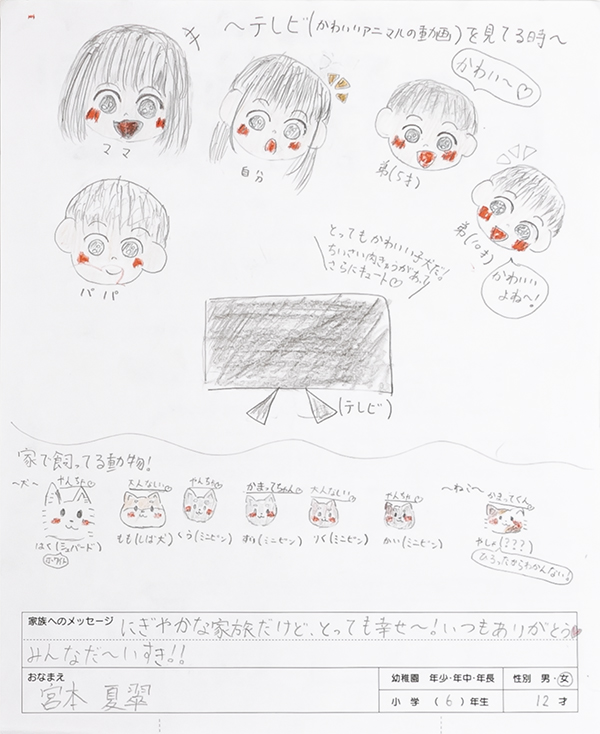 ～テレビ(かわいいアニマルの動画)を見てる時～
かわい～♡
ママ
自分
弟(5才)
弟(10才)
かわいい
よね～!
パパ
とってもかわいい子犬だ!
ちいさい肉きゅうがあって
さらにキュート♡
(テレビ)
家で飼ってる動物!
～犬～
やんちゃ♡
大人なしい♡
やんちゃ♡
かまってちゃん♡
大人なしい♡
やんちゃ♡
～ねこ～
かまってくん♡
はく(シェパード)
ホワイト
もも(しば犬)
くう(ミニピン)
すず(ミニピン)
りく(ミニピン)
かい(ミニピン)
やしゃ(???)
ひろったからわかんない!
家族へのメッセージ
にぎやかな家族だけど、とっても幸せ～!いつもありがとう♥
みんなだ～いすき!!
おなまえ
宮本 夏翠
幼稚園 年少・年中・年長
小学 (6)年生
性別 男・女
12才